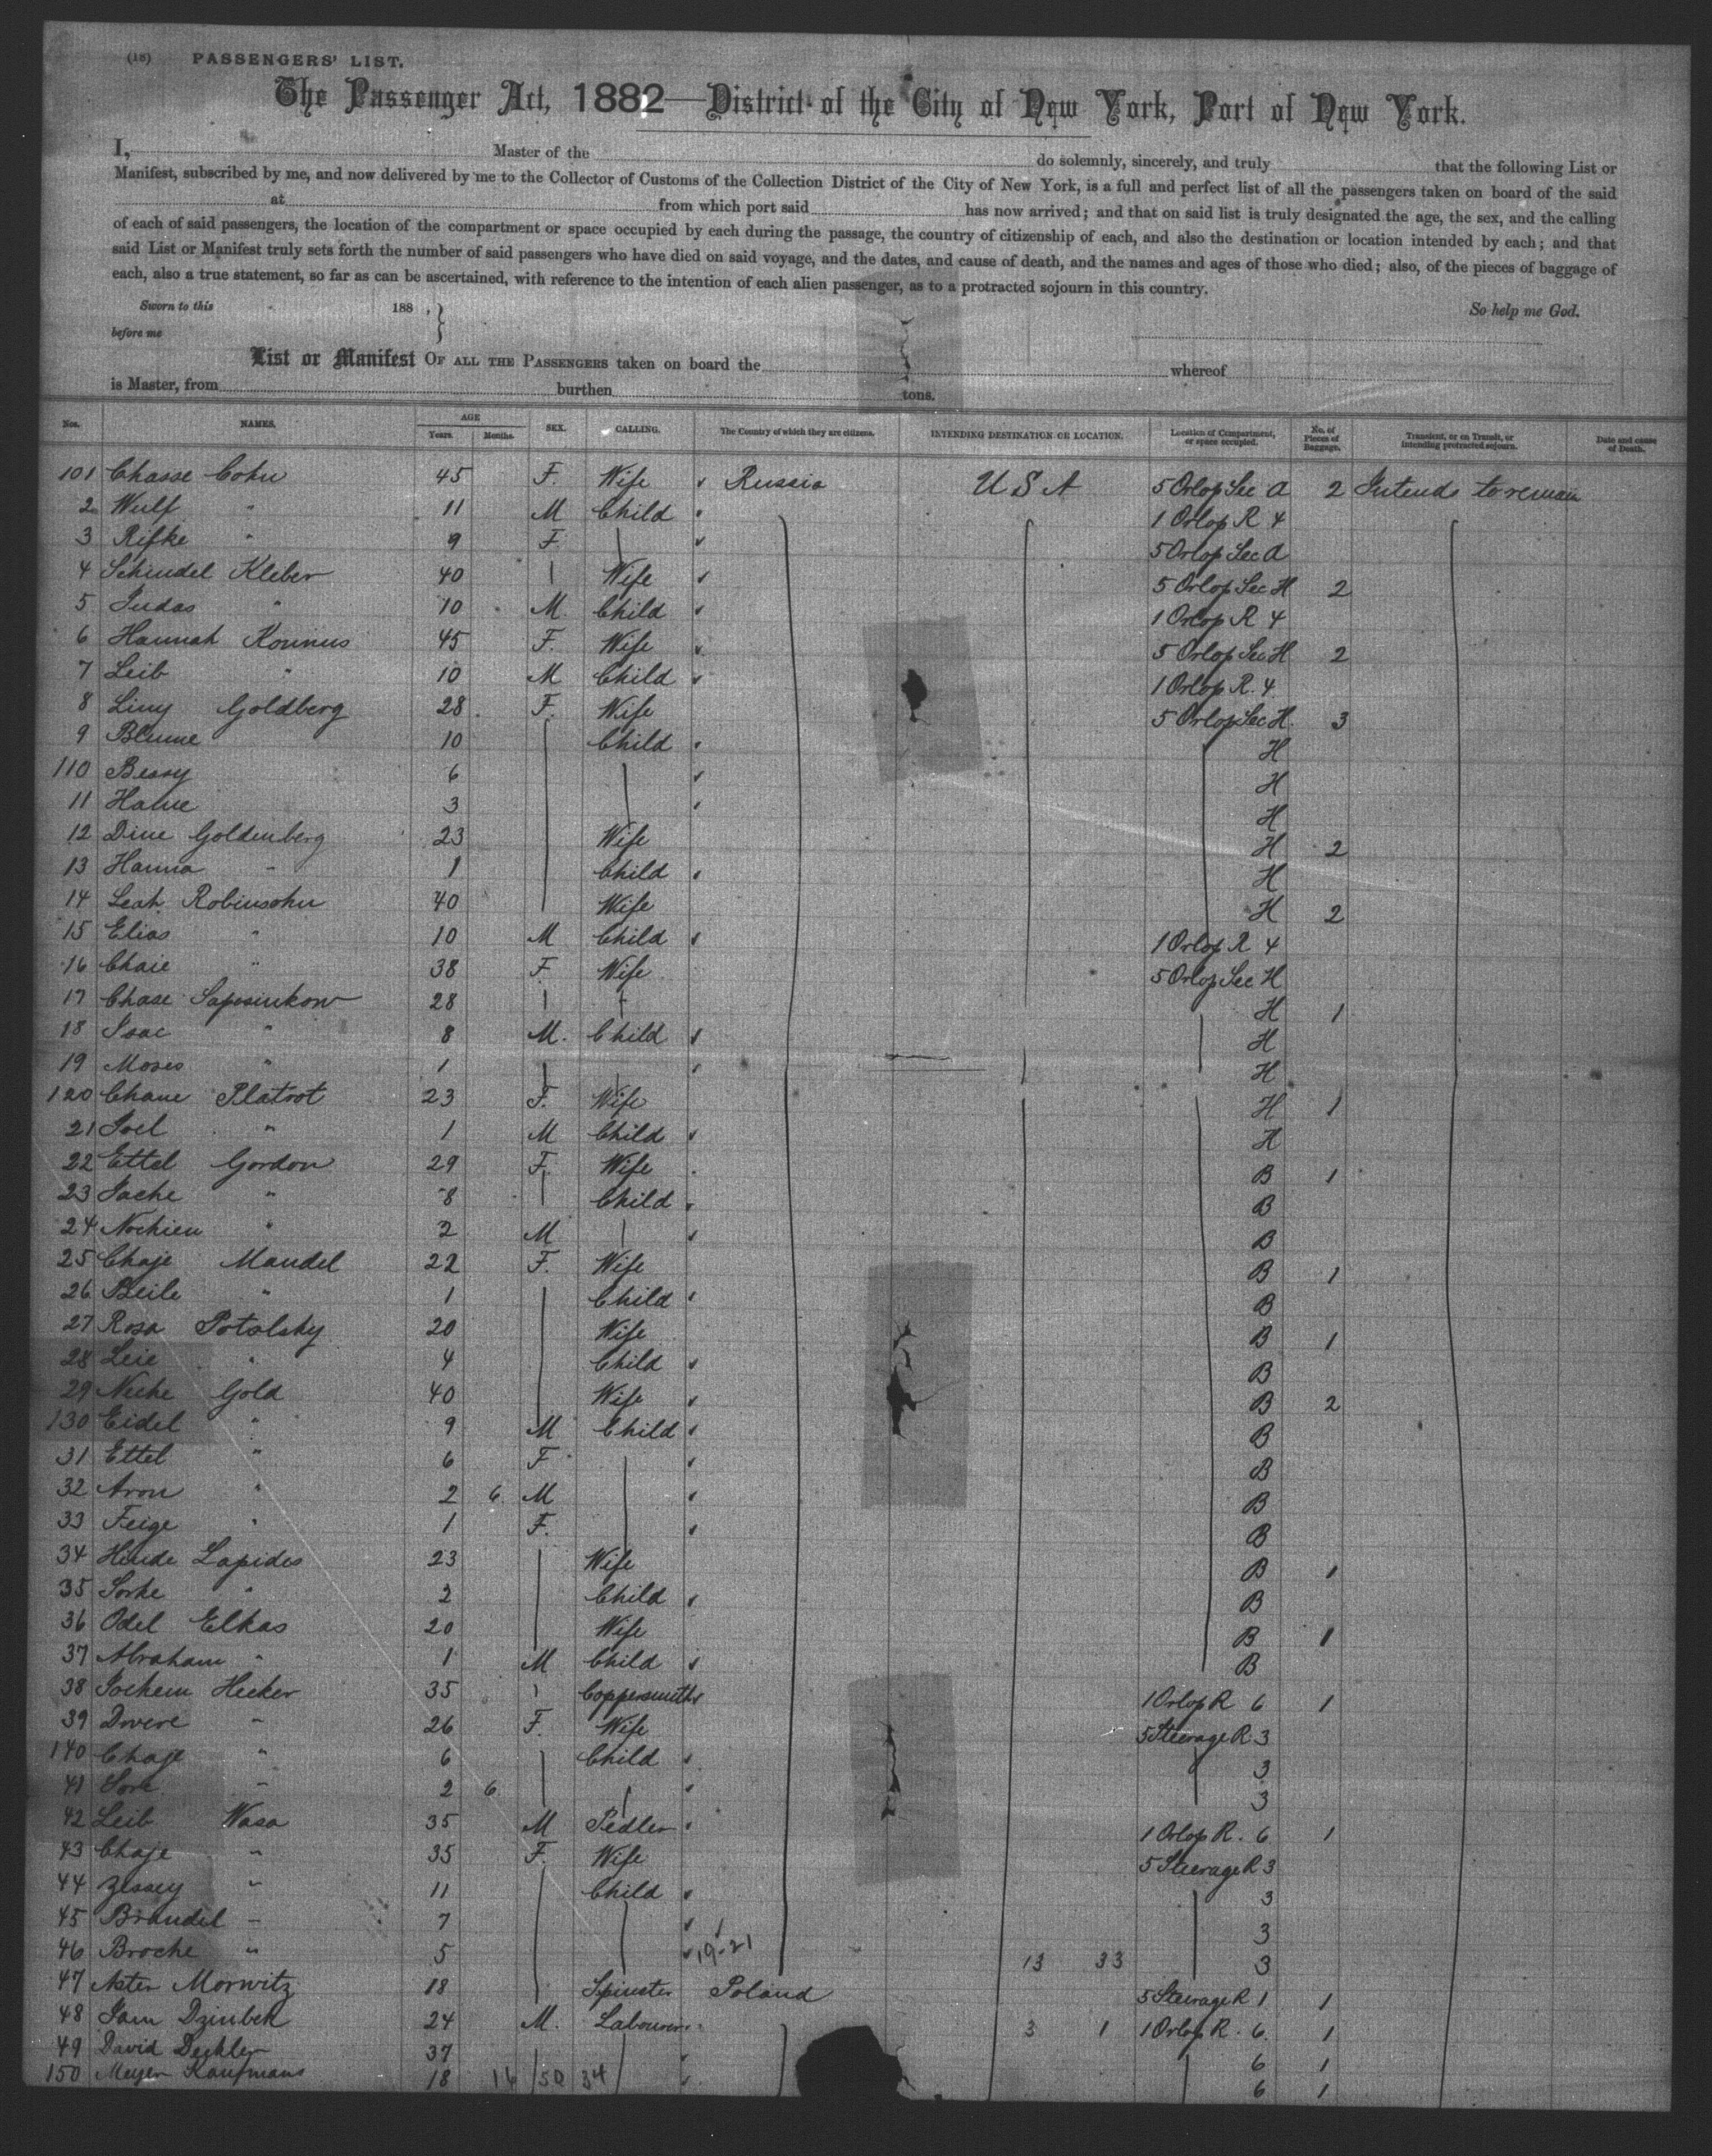 (18) PASSENGERS' LIST.
The Passenger Act, 1882—District of the City of New York, Port of New York.
I, Master of the do solemnly, sincerely, and truly that the following List or
Manifest, subscribed by me, and now delivered by me to the Collector of Customs of the Collection District of the City of New York, is a full and perfect list of all the passengers taken on board of the said
at from which port said has now arrived; and that on said list is truly designated the age, the sex, and the calling
of each of said passengers, the location of the compartment or space occupied by each during the passage, the country of citizenship of each, and also the destination or location intended by each; and that
said List or Manifest truly sets forth the number of said passengers who have died on said voyage, and the dates, and cause of death, and the names and ages of those who died; also, of the pieces of baggage of
each, also a true statement, so far as can be ascertained, with reference to the intention of each alien passenger, as to a protracted sojourn in this country.
Sworn to this 188 , } So help me God.
before me
List or Manifest OF ALL THE PASSENGERS taken on board the whereof
is Master, from burthen tons.
Nos. NAMES. AGE Years. Months. SEX. CALLING. The Country of which they are citizens. INTENDING DESTINATION OR LOCATION. Location of Compartment, or space occupied. No. of Pieces of Baggage. Transient, or on Transit, or intending protracted sojourn. Date and cause of Death.
101 Chasse Cohn 45 F. Wife Russia U S A 5 Orlop Sec A 2 Intends to remain
2 Wulf " 11 M Child 1 Orlop R 4
3 Rifke " 9 F. 5 Orlop Sec A
4 Schindel Kleber 40 Wife 5 Orlop Sec H 2
5 Judas " 10 M. Child 1 Orlop R 4
6 Hannah Kounus 45 F. Wife 5 Orlop Sec H 2
7 Leib " 10 M Child 1 Orlop R. 4
8 Liny Goldberg 28 F. Wife 5 Orlop Sec H. 3
9 Blume 10 Child H
110 Bessy 6 H
11 Hahne 3 H
12 Dine Goldenberg 23 Wife H 2
13 Hanna " 1 Child H
14 Leah Robinsohn 40 Wife H 2
15 Elias " 10 M Child 1 Orlop R 4
16 Chaie " 38 F. Wife 5 Orlop Sec H
17 Chase Saposinkow 28 H 1
18 Isac " 8 M. Child H
19 Moses " 1 H
120 Chane Platrot 23 F. Wife H 1
21 Joel " 1 M Child H
22 Ettel Gordon 29 F. Wife B 1
23 Jache " 8 Child B
24 Nochien " 2 M B
25 Chaje Mandel 22 F. Wife B 1
26 Beile " 1 Child B
27 Rosa Potolsky 20 Wife B 1
28 Leie " 4 Child B
29 Neche Gold 40 Wife B 2
130 Eidel " 9 M Child B
31 Ettel " 6 F B
32 Aron " 2 6 M B
33 Feige " 1 F. B
34 Hinde Lapides 23 Wife B 1
35 Sorke " 2 Child B
36 Odel Elkas 20 Wife B 1
37 Abraham " 1 M Child B
38 Jochem Hecker 35 Coppersmith 1 Orlop R 6 1
39 Dwere " 26 F. Wife 5 Steerage R. 3
140 Chaje " 6 Child 3
41 Sore " 2 6 3
42 Leib Wasa 35 M Pedler 1 Orlop R. 6 1
43 Chaje " 35 F. Wife 5 Steerage R 3
44 Zessey " 11 Child 3
45 Brandel " 7 3
46 Broche " 5 19-21 13 33 3
47 Aster Morwitz 18 Spinster Poland 5 Steerage R 1 1
48 Jam Dzinbek 24 M. Labourer 3 1 1 Orlop R. 6. 1
49 David Deckler 37 6 1
150 Meyer Kaufmans 18 16 50 34 6 1